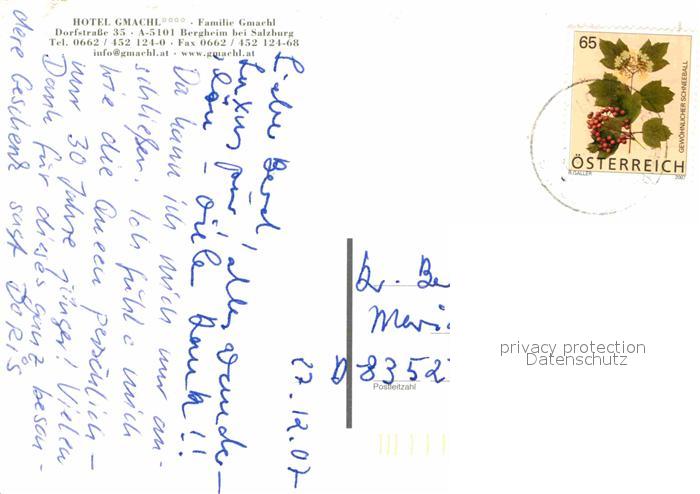 HOTEL GMACHL°°°° · Familie Gmachl
Dorfstraße 35 · A-5101 Bergheim bei Salzburg
Tel. 0662 / 452 124-0 · Fax 0662 / 452 124-68
info@gmachl.at · www.gmachl.at
27.12.07
Liebe Gerdi,
Luxus pur, alles wunder-
schön - Vielen Dank!!
Da kann ich mich nur an-
schließen. Ich fühle mich
wie die Queen persönlich -
nur 30 Jahre jünger! Vielen
Dank für dieses ganz beson-
dere Geschenk sagt Doris
65
GEWÖHNLICHER SCHNEEBALL
ÖSTERREICH
B.GALLER
2007
Dr. Be
D 8352
Postleitzahl
privacy protection
Datenschutz